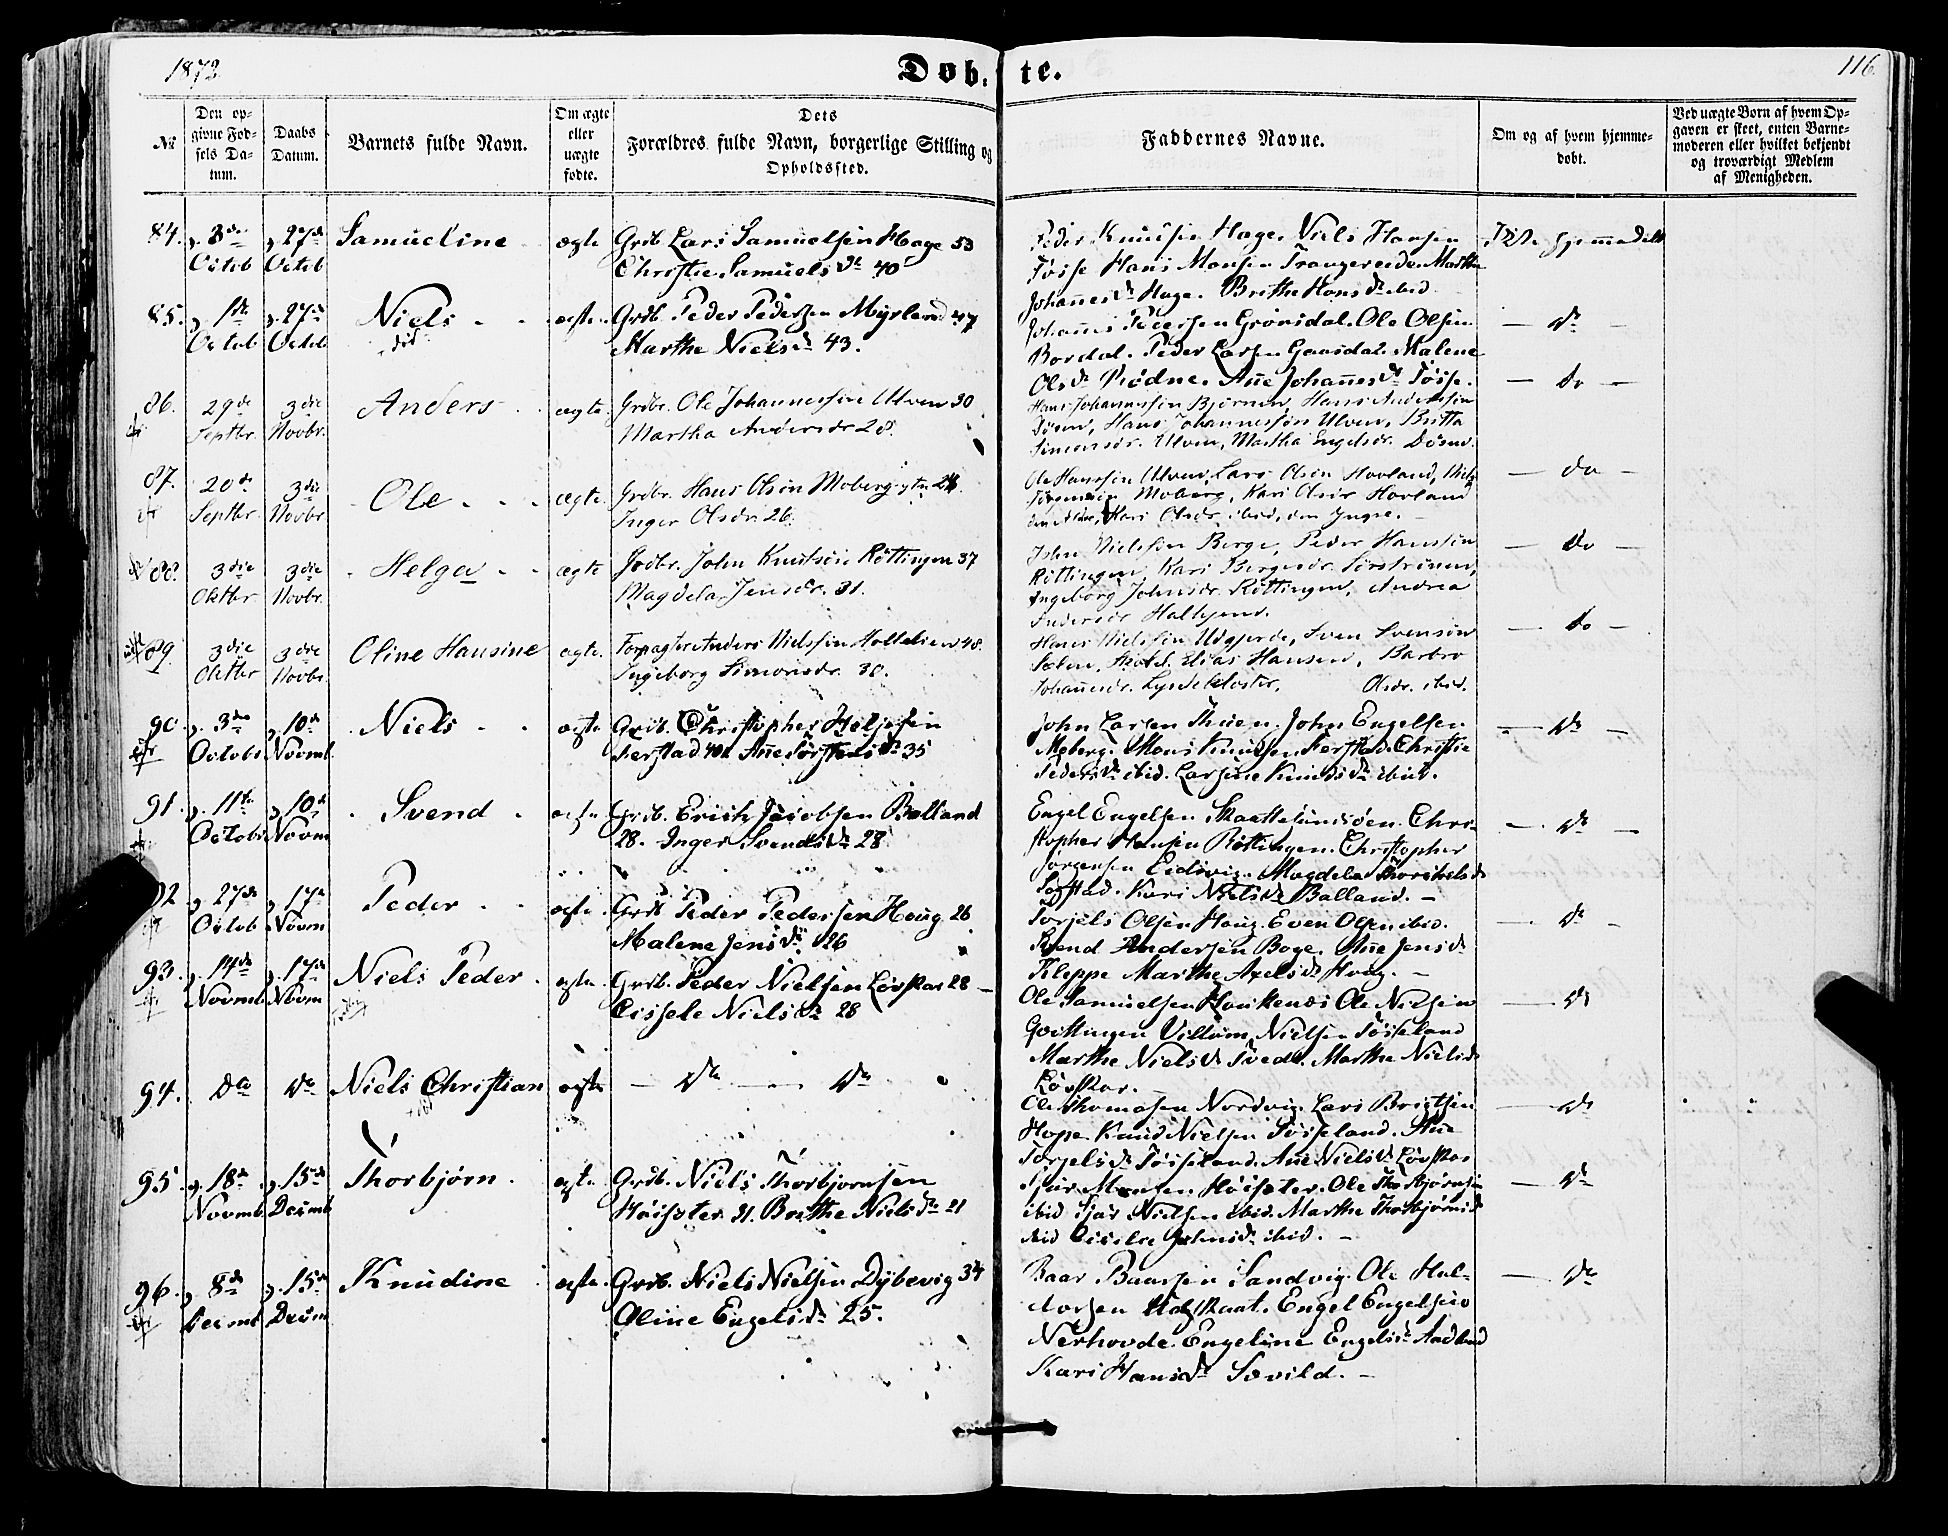 1872
Døb- te.
116.
No
Den opgivne Fødsels Datum.
Daabs Datum.
Barnets fulde Navn.
Om ægte eller uægte fødte.
Dets Forældres fulde Navn, borgerlige Stilling og Opholdssted.
Faddernes Navne.
Om og af hvem hjemmedøbt.
Ved uægte Børn af hvem Opgaven er skeet, enten Barnemoderen eller hvilket bekjendt og troværdigt Medlem af Menigheden.
84. 3die Octob 27de Octob Samueline ægte Grdb. Lars Samuelsen Hage 53
Christie Samuelsdr 40
Peder Knudsen Hage. Niels Hansen
Tøsse Hans Monsen Trangereide. Marthe
Johannesdr Hage. Brithe Hansdr ibid
Ikke hjemmedøbt
85. 1ste Octob 27de Octob Niels ægte Grdb. Peder Pedersen Myrland 47
Marthe Nielsdr 43.
Johannes Pedersen Grønsdal. Ole Olsen
Bordal. Peder Larsen Gaasdal. Malene
Olsdr Rødne. Ane Johannesdr Tøsse.
do
86. 29de Septbr. 3die Novbr. Anders ægte Grdbr. Ole Johannessen Ulven 30
Martha Andersdr 28.
Hans Johannessen Bjørnen, Hans Anderssen
Døsen, Hans Johannessøn Ulven, Britta
Simonsdr. Ulven, Martha Engelsdr. Døsen.
do
87. 20de Septbr 3die Novbr Ole ægte Grdbr. Hans Olsen Moberg
Inger Olsdr. 26.
Ole Hanssen Ulven, Lars Olsen Hovland, Niels
Moberg, Kari Olsdr Hovland
Kari Olsdr ibid, den Yngre.
do
88. 3die Oktbr 3die Novbr. Helga ægte Grdbr. John Knutsen Røttingen 37
Magdela Jensdr. 31.
John Nielssen Berge, Peder Hanssen
Røttingen, Kari Bergesdr.
Ingeborg Johnsdr. Røttingen, Andrea
Andersdr Halhjem.
do
89. 3die Oktbr 3die Novbr. Oline Hansine ægte Forpagter Anders Nielssen 48.
Ingeborg Simonsdr. 30.
Hans Nielssen Udgjerde, Sven Svensøn
Elias Hansen, Barbro
Johannesdr. Lysekloster, Olsdr. ibid.
do
90. 3die Octobr 10de Novmb Niels ægte Grdb. Christopher Heljesen
Ferstad 40 Ane Torstensdr 35
John Larsen Thuen. John Engelsen
Moberg. Mons Knudsen Ferstad. Christie
Pedersdr ibid. Larsine Knudsdr ibid.
do
91. 11te Octobr 10de Novm Svend ægte Grdb. Erich Jacobsen Balland
28. Inger Svendsdr 28
Engel Engelsen Skaattesundsøen. Chri-
stopher Hansen Røttingen. Christopher
Jørgensen Eidsvig. Magdela
Kari Nielsdr Balland.
do
92 27de Octob 17de Novm Peder ægte Grdb Peder Pedersen Haug 26
Malene Jensdr 26
Torjels Olsen Haug. Even Olsen ibid.
Svend Andersen Boge. Ane Jensdr
Kleppe Marthe Axelsdr Haug.
do
93. 14de Novmb 17de Novm Niels Peder ægte Grdb. Peder Nielsen Løvskar 28
Cissele Nielsdr 28
Ole Samuelsen Haukenæs Ole Nielsen
Gøttingen Villum Nielsen Tøsseland
Marthe Nielsdr Tvedt. Marthe Nielsdr
Løvskar.
do
94. do do Niels Christian ægte do do
Ole Thomasen Nordvig. Lars Brigtsen
Hope. Knud Nielsen Tøsseland. Ane
Torjelsdr Tøsseland. Ane Nielsdr Løvskar
do
95. 18de Novmb 15de Decmb Thorbjørn ægte Grdb. Niels Thorbjørnsen
Høisæter 31. Brithe Nielsdr 21
Monsen Høisæter. Ole Thorbjørnsen
ibid Nielsen ibid. Marthe Thorbjørnsdr
ibid Johnsdr ibid.
do
96. 8de Decmb 15de Decmb Knudine ægte Grdb. Niels Nielsen Dybevig 34
Oline Engelsdr 25.
Baar Baarsen Sandvig. Ole Hal-
vorsen Engel Engelsen
Nerhovde. Engeline Engelsdr Aadland
Kari Hansdr Søvild.
do